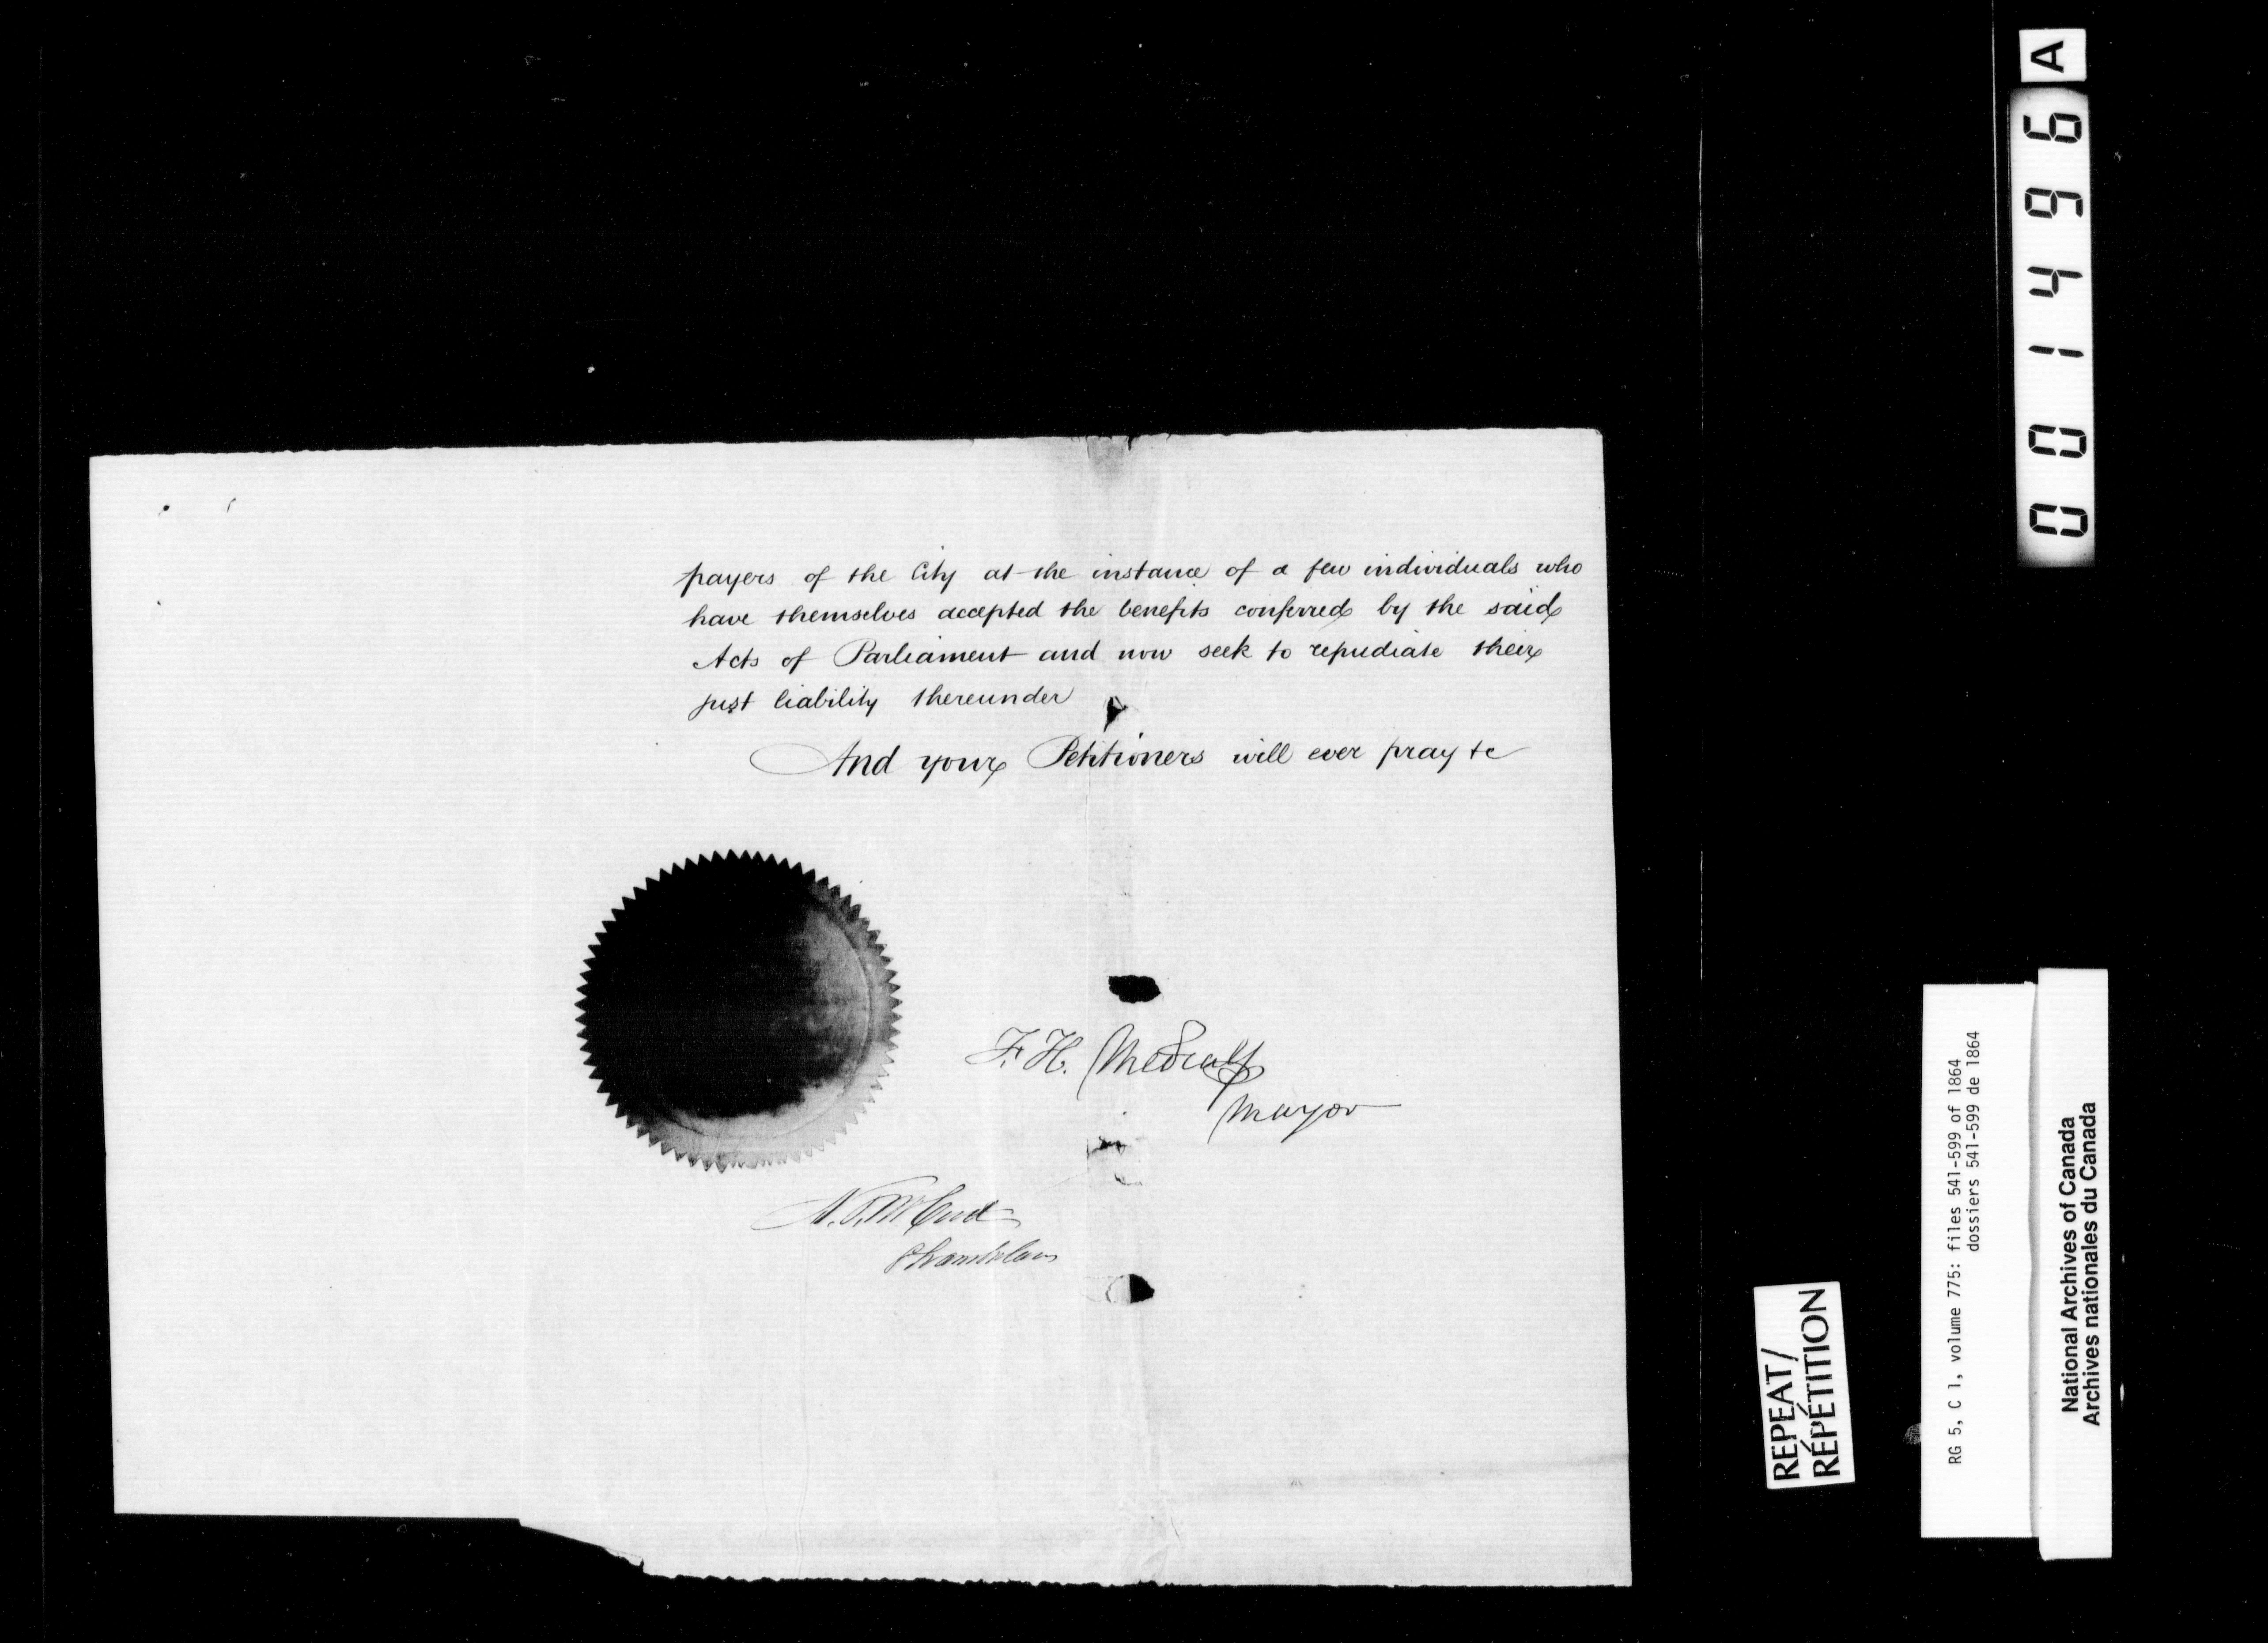 payers of the City at the instance of a few individuals who
have themselves accepted the benefits conferred by the said
Acts of Parliament and now seek to repudiate their
just liability thereunder
And your Petitioners will ever pray &c
F. H. Medcalf
Mayor
Chamberlain
REPEAT/
RÉPÉTITION
RG 5, C 1, volume 775: files 541-599 of 1864
dossiers 541-599 de 1864
National Archives of Canada
Archives nationales du Canada
001496 A